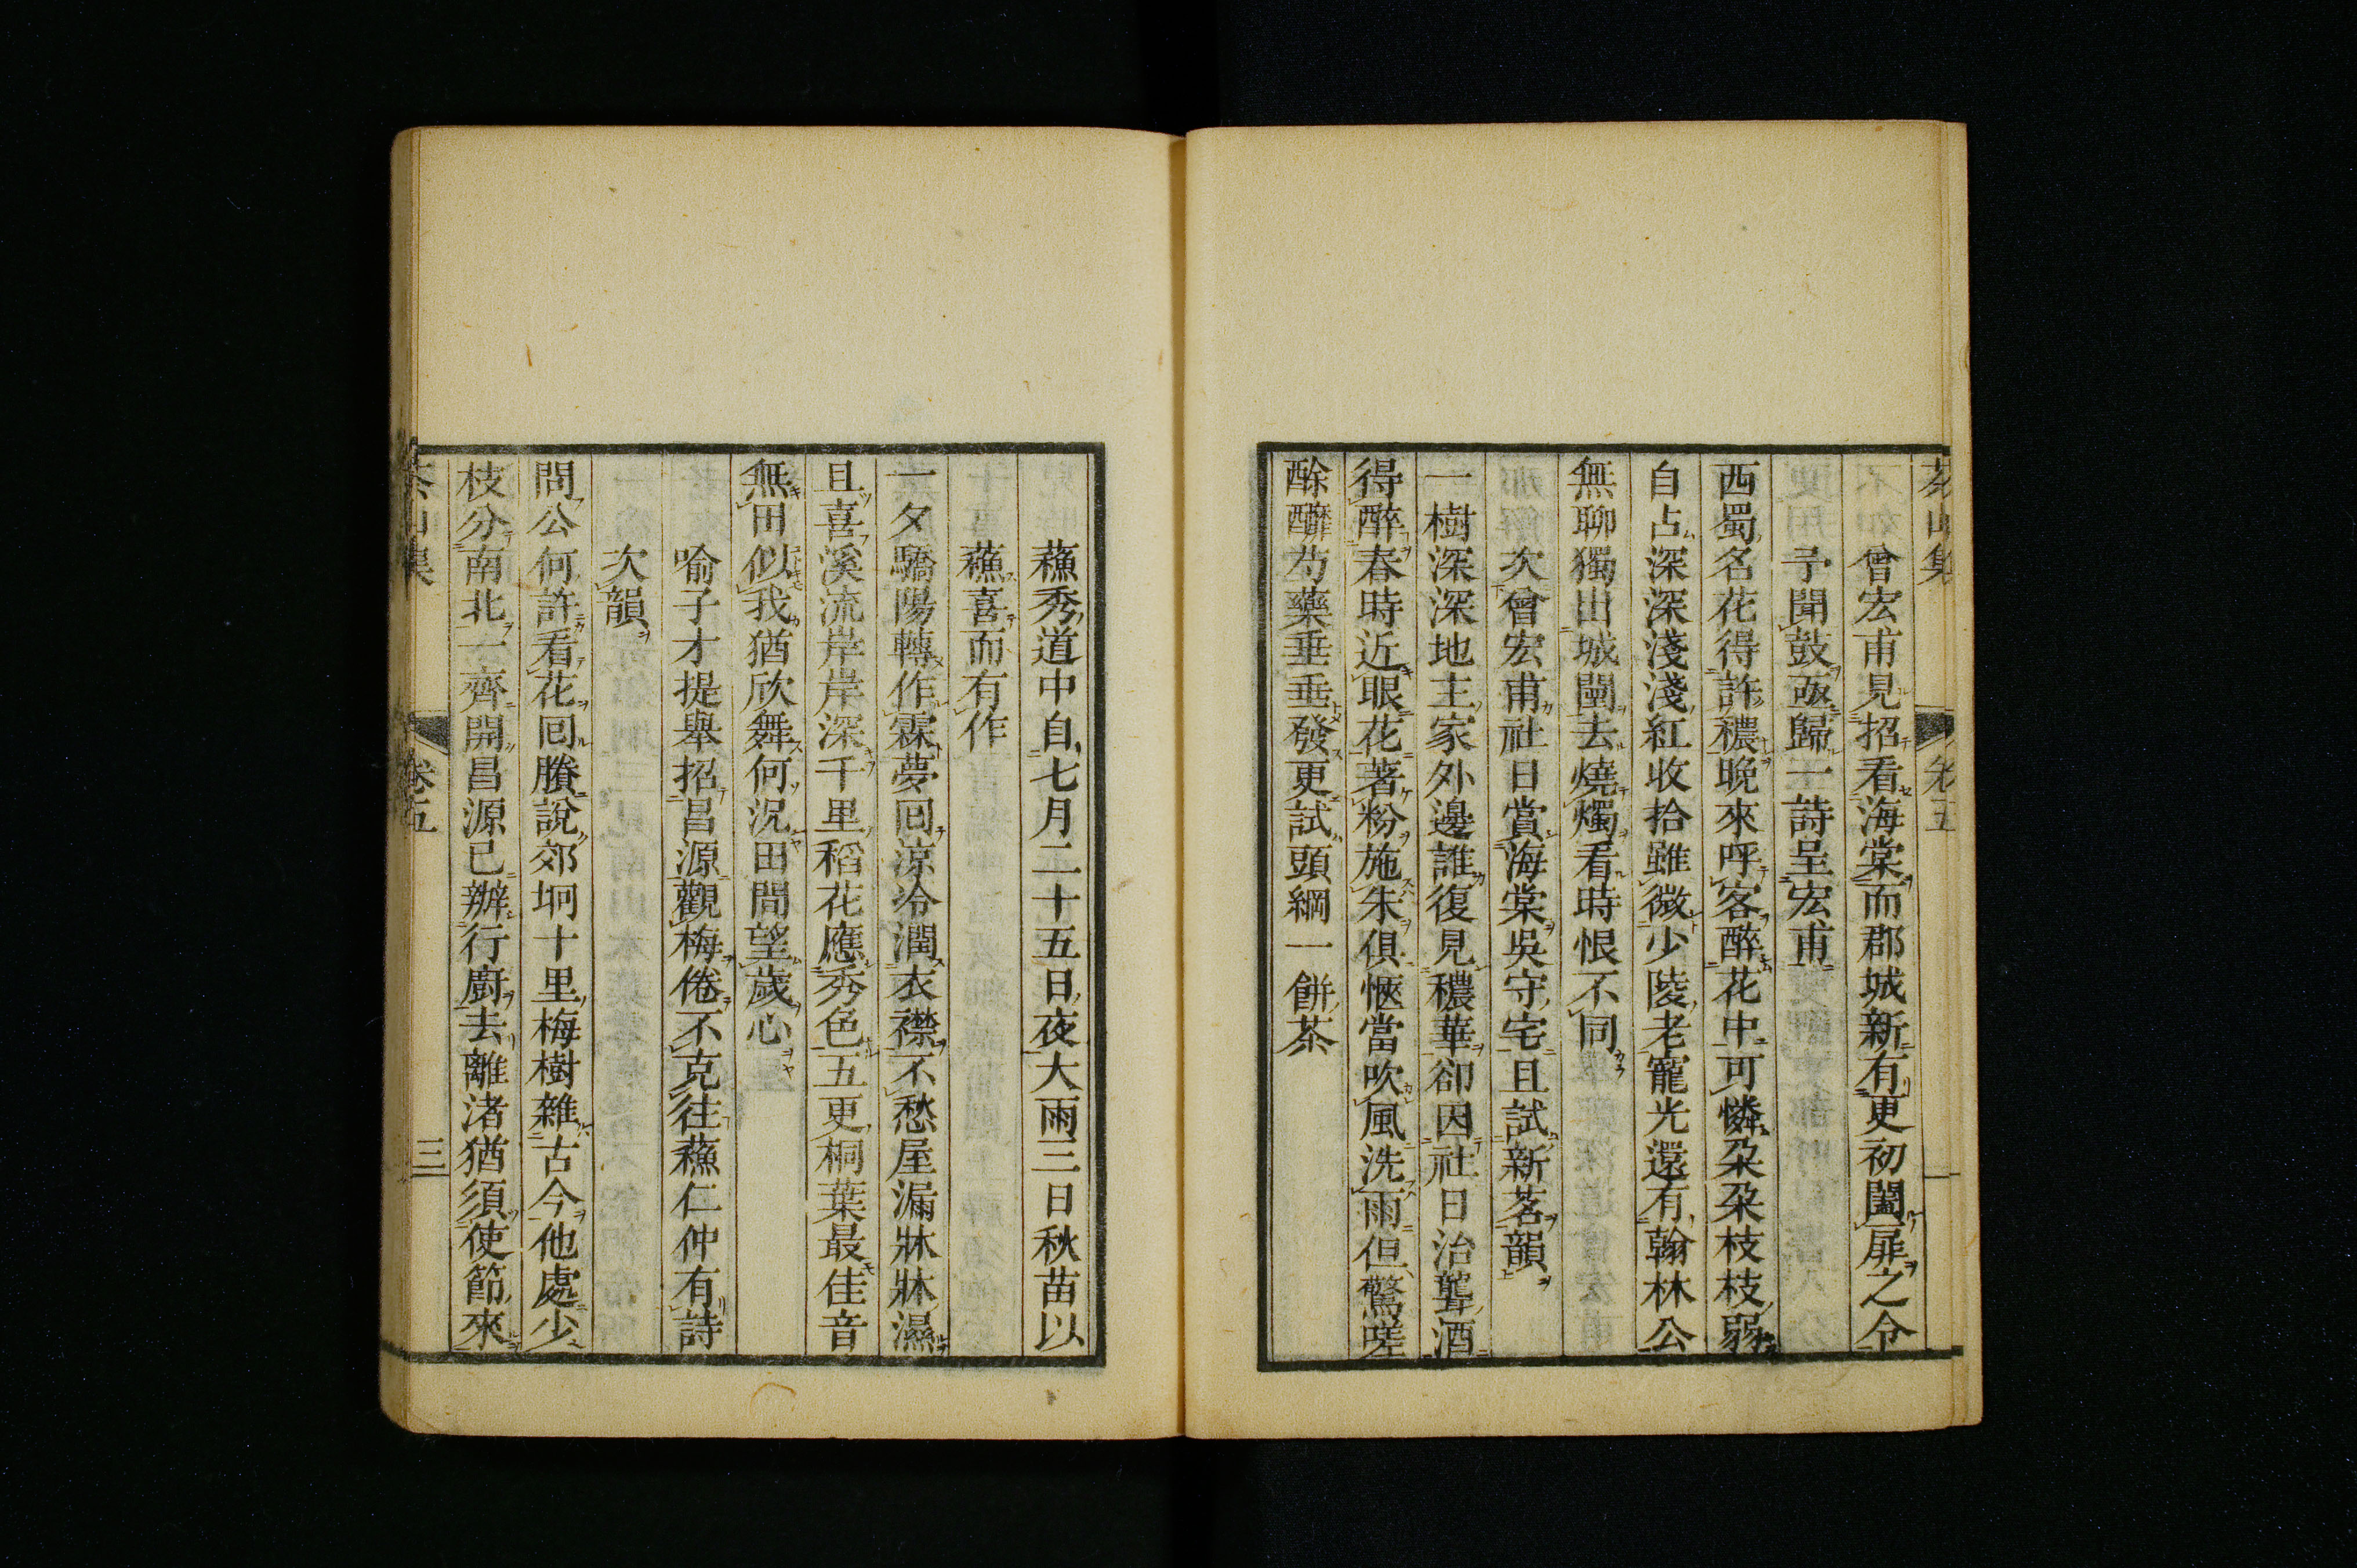 茶山集 卷五
曾宏甫見招看海棠而郡城新有更初闔扉之令
予聞鼓亟歸一詩呈宏甫
西蜀名花得許穠晚來呼客醉花中可憐朶朶枝枝弱
自占深深淺淺紅收拾雖微少陵老寵光還有翰林公
無聊獨出城闉去燒燭看時恨不同
次曾宏甫社日賞海棠吳守宅且試新茗韻
一樹深深地主家外邊誰復見穠華卻因社日治聾酒
得醉春時近眼花著粉施朱俱愜當吹風洗雨但驚嗟
酴醾芍藥垂垂發更試頭綱一餅茶
蘓秀道中自七月二十五日夜大雨三日秋苗以
蘓喜而有作
一夕驕陽轉作霖夢回涼冷潤衣襟不愁屋漏牀牀濕
且喜溪流岸岸深千里稻花應秀色五更桐葉最佳音
無田似我猶欣舞何況田間望歲心
喻子才提舉招昌源觀梅倦不克往蘓仁仲有詩
次韻
問公何許看花回賸說郊坰十里梅樹雜古今他處少
枝分南北一齊開昌源已辦行廚去離渚猶須使節來
茶山集 卷五 三